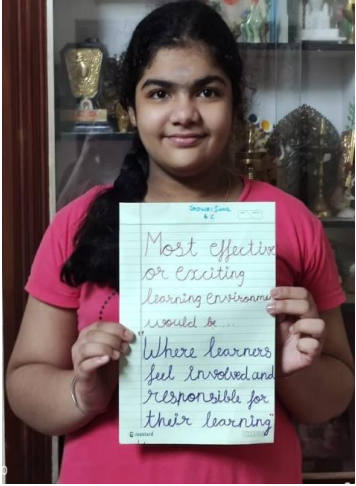 6 C
Most effective
or exciting
learning environme
would be...
"Where learners
feel involved and
responsible for
their learning"